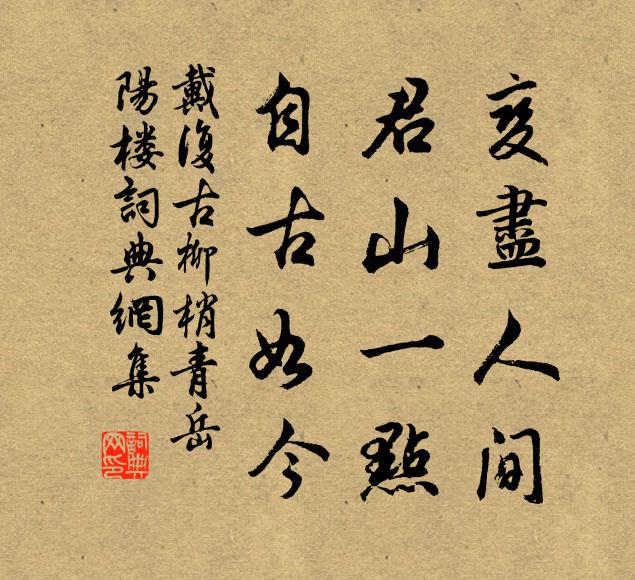 变盡人间
君山一點
自古如今
戴復古柳梢青岳
陽楼詞典網集
詞典网印